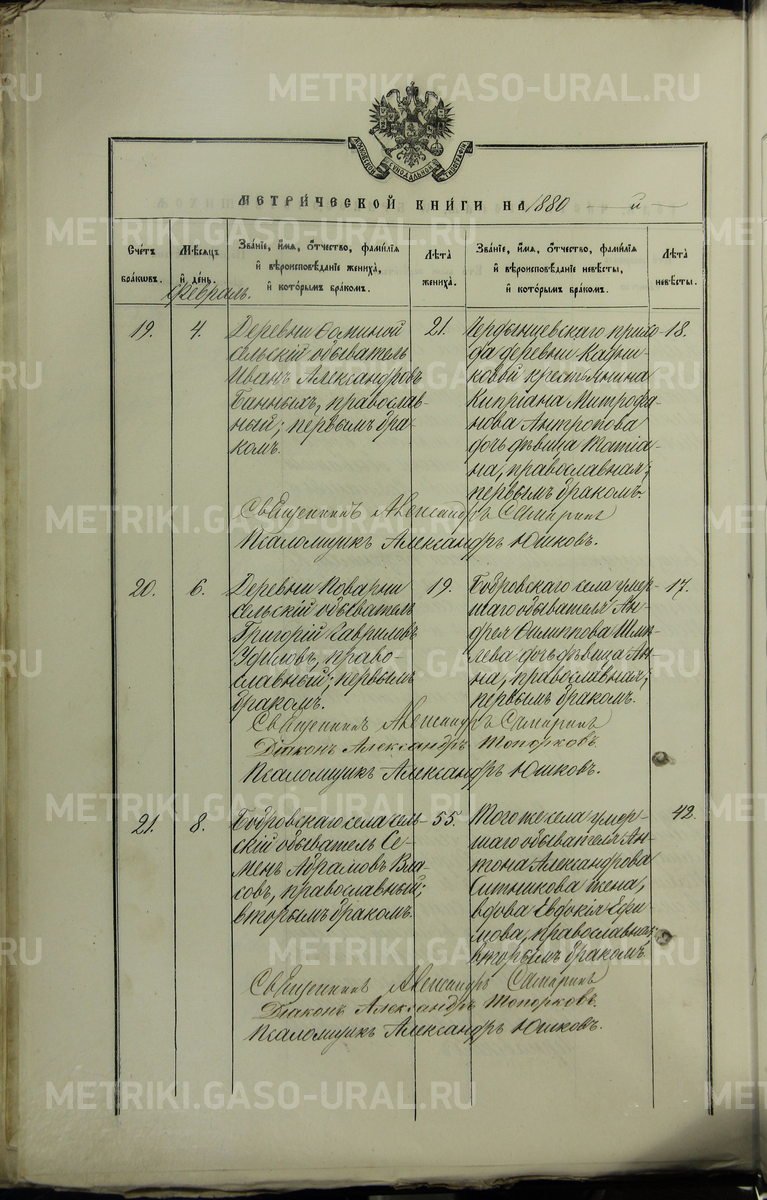 МЕТРИ́ЧЕСКОЙ КНИ́ГИ НА 1880 - й -
Сче́тъ бра́ковъ.
Мѣ́сяцъ й де́нь.
Зва́нїе, и́мя, о́тчество, фами́лїя й вѣроисповѣ́данїе жениха́, й кото́рымъ бра́комъ.
Лѣта̀ жениха̀.
Зва́нїе, и́мя, о́тчество, фами́лїя й вѣроисповѣ́данїе невѣ́сты, й кото́рымъ бра́комъ.
Лѣта̀ невѣ́сты.
Февраль.
19.
4.
Деревни Ѳоминой
сельскій обыватель
Иванъ Александровъ
Бинныхъ, православ-
ный; первымъ бра-
комъ.
21.
прихо-
да деревни
ковой крестьянина
Кипріана Митрофа-
нова Антропова
дочь дѣвица Татіа-
на, православная;
первымъ бракомъ.
18.
Священникъ Александръ
Псаломщикъ Александръ Юшковъ.
20.
6.
Деревни Поварни
сельскій обыватель
Григорій Гавриловъ
православный; первымъ
бракомъ.
19.
Бобровскаго села умер-
шаго обывателя Ан-
дрея Филиппова Шме-
лева дочь дѣвица Ан-
на, православная;
первымъ бракомъ.
17.
Священникъ Александръ
Діаконъ Александръ Топорковъ.
Псаломщикъ Александръ Юшковъ.
21.
8.
Бобровскаго села сель-
скій обыватель Се-
менъ Абрамовъ Вла-
совъ, православный;
вторымъ бракомъ.
55.
Того же села умер-
шаго обывателя Ан-
тона Александрова
Ситникова жена,
вдова Евдокія Ефи-
мова, православная;
вторымъ бракомъ.
42.
Священникъ Александръ
Діаконъ Александръ Топорковъ.
Псаломщикъ Александръ Юшковъ.
METRIKI.GASO-URAL.RU